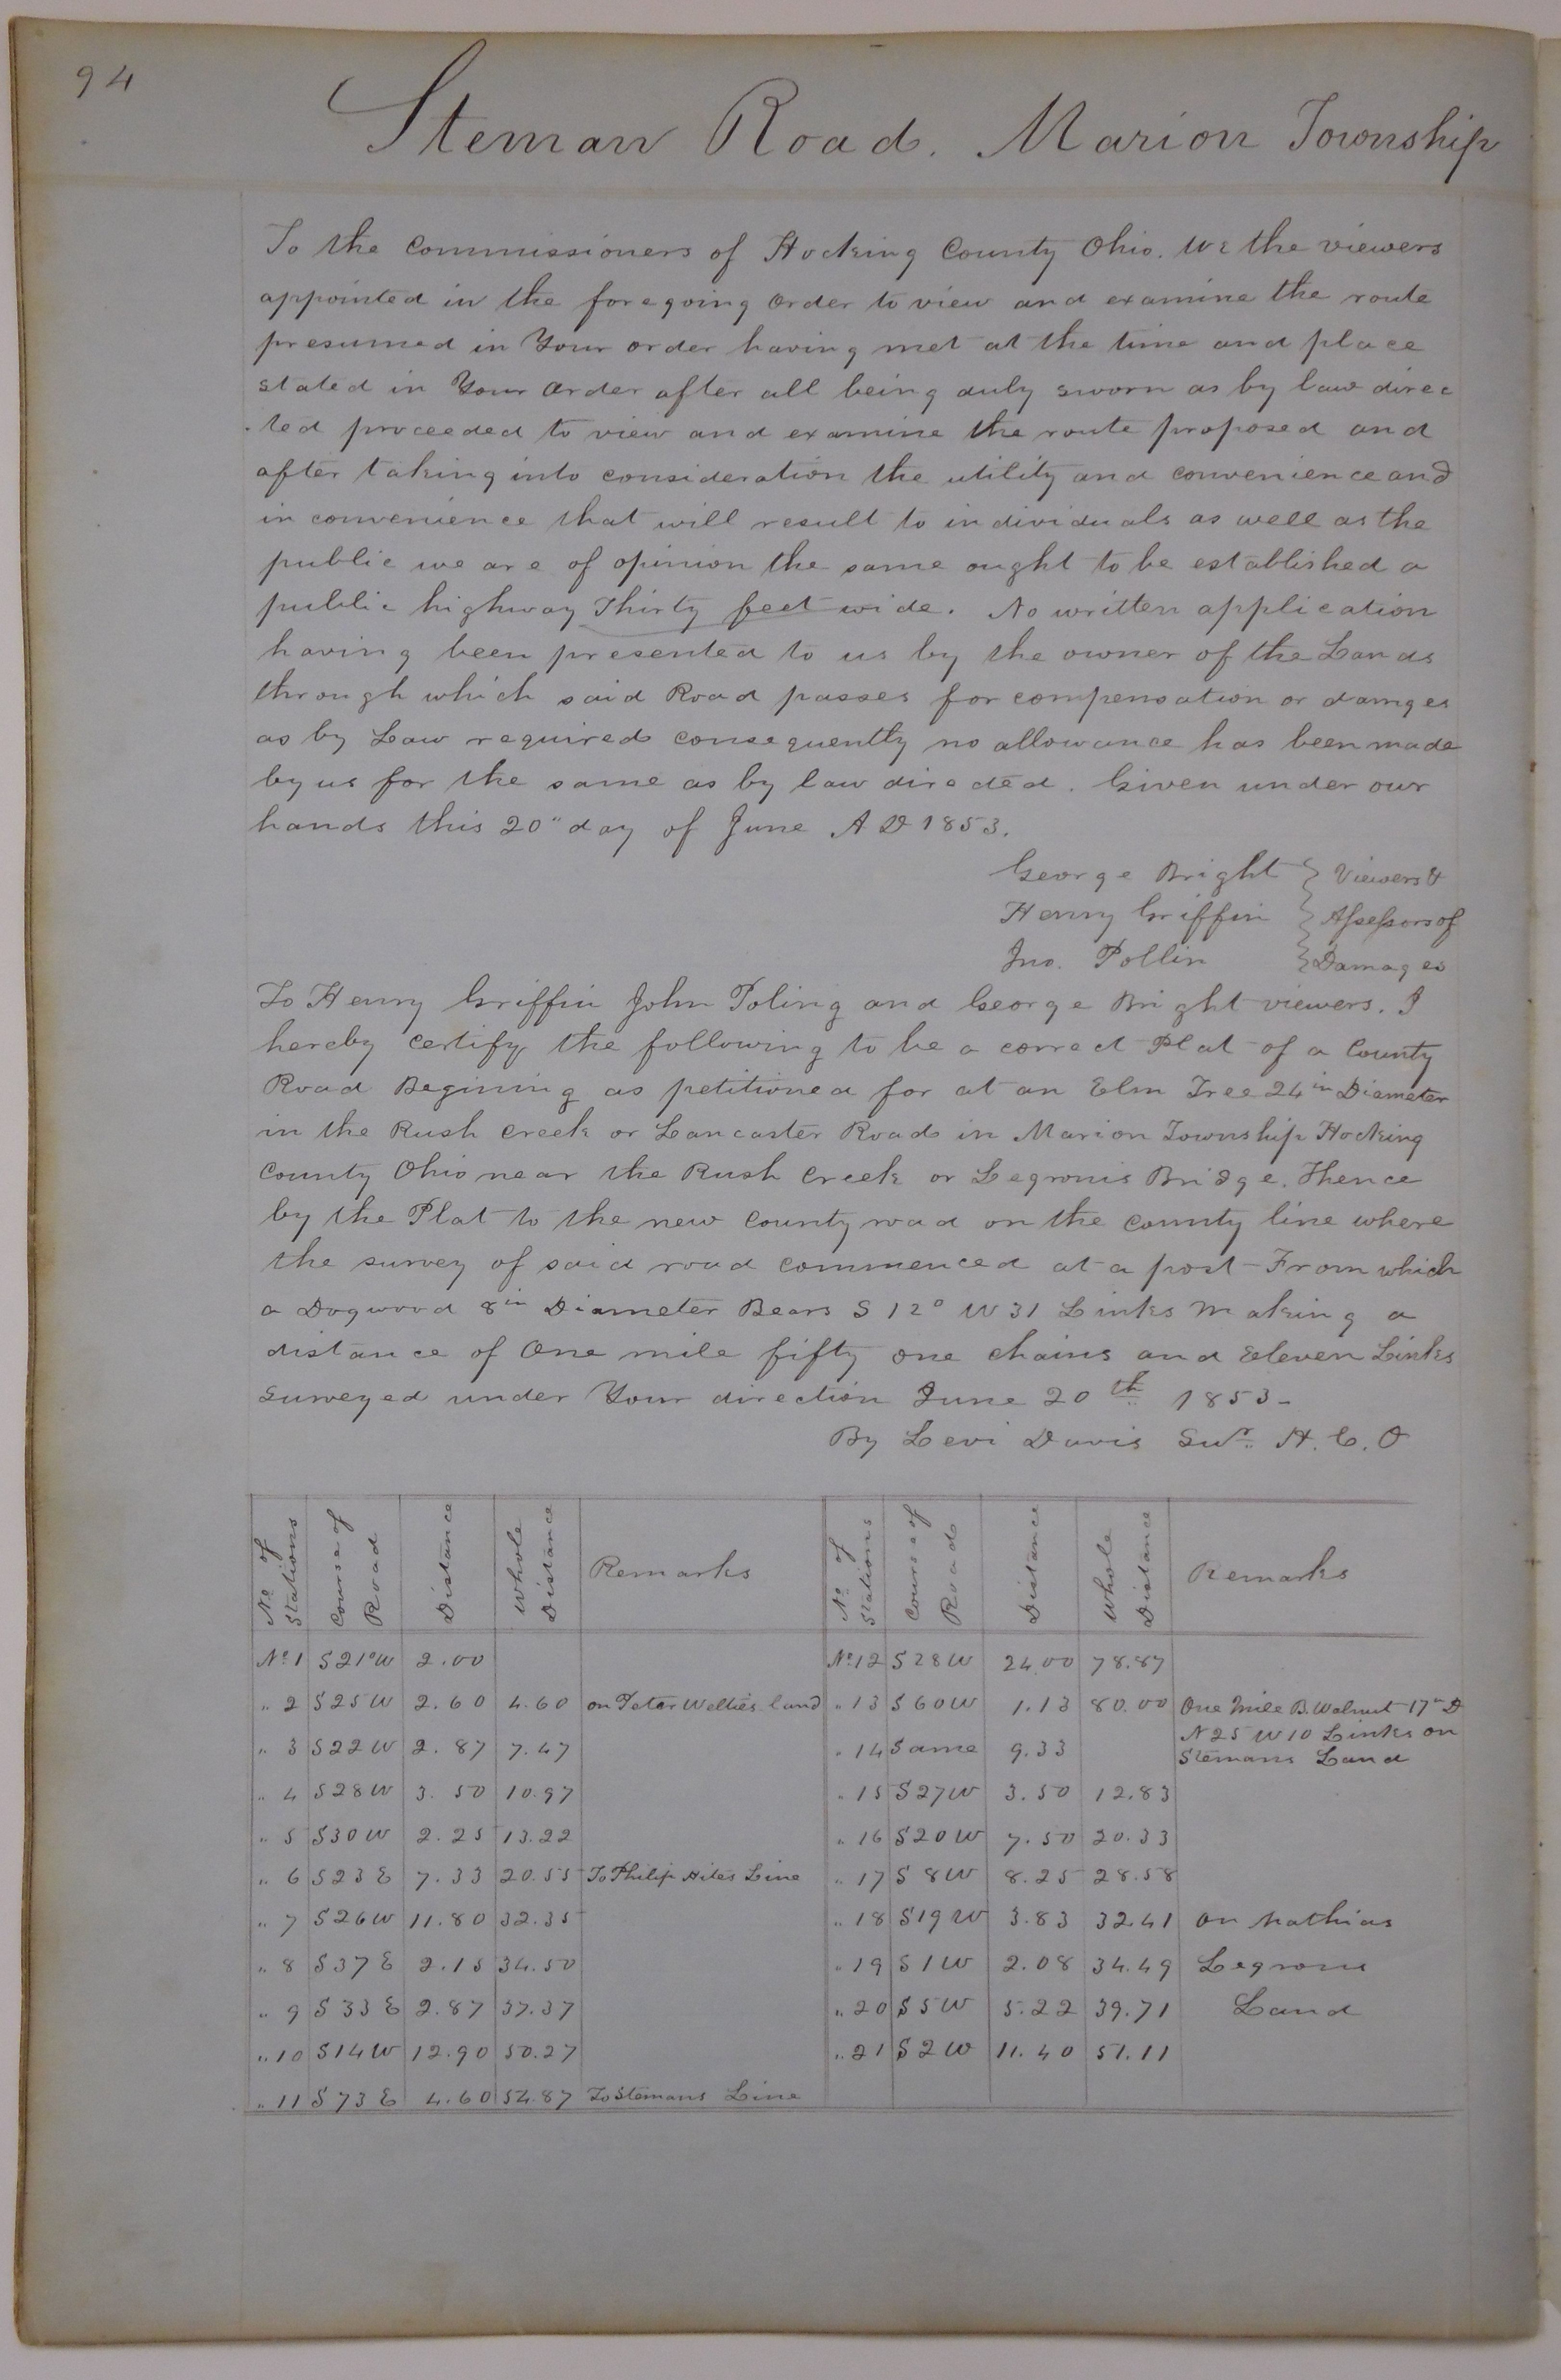 94
Steman Road. Marion Township
To the Commissioners of Hocking County Ohio. We the viewers
appointed in the foregoing order to view and examine the route
presumed in Your order having met at the time and place
stated in Your Order after all being duly sworn as by law direc
ted proceeded to view and examine the route proposed and
after taking into consideration the utility and convenience and
in convenience that will result to individuals as well as the
public we are of opinion the same ought to be established a
public highway Thirty feet wide. No written application
having been presented to us by the owner of the Lands
through which said Road passes for compensation or damges
as by Law required consequently no allowance has been made
by us for the same as by law directed. Given under our
hands this 20" day of June A D 1853.
George Bright } Viewers &
Henry Griffin } Assessors of
Jno. Pollin } Damages
To Henry Griffin John Poling and George Bright viewers. I
hereby certify the following to be a correct Plat of a County
Road Begining as petitioned for at an Elm Tree 24 in Diameter
in the Rush Creek or Lancaster Road in Marion Township Hocking
County Ohio near the Rush Creek or Legronis Bridge. Thence
by the Plat to the new County road on the County line where
the survey of said road commenced at a post From which
a Dogwood 8 in Diameter Bears S 12° W 31 Links Making a
distance of One mile fifty one chains and Eleven Links
Surveyed under Your direction June 20th 1853-
By Levi Davis Sur. H. C. O
No of Stations | Course of Road | Distance | Whole Distance | Remarks | No of Stations | Course of Road | Distance | Whole Distance | Remarks
No 1 S21°W 2.00 No 12 S28W 24.00 78.87
" 2 S25W 2.60 4.60 on Peter Welties land " 13 S60W 1.13 80.00 One Mile B. Walnut 17in D
" 3 S22W 2.87 7.47 " 14 Same 9.33 N25 W10 Links on
Stemans Land
" 4 S28W 3.50 10.97 " 15 S27W 3.50 12.83
" 5 S30W 2.25 13.22 " 16 S20W 7.50 20.33
" 6 S23E 7.33 20.55 To Philip Hites Line " 17 S8W 8.25 28.58
" 7 S26W 11.80 32.35 " 18 S19W 3.83 32.41 on Mathias
" 8 S37E 2.15 34.50 " 19 S1W 2.08 34.49 Legrons
" 9 S33E 2.87 37.37 " 20 S5W 5.22 39.71 Land
" 10 S14W 12.90 50.27 " 21 S2W 11.40 51.11
" 11 S73E 4.60 54.87 To Stemans Line